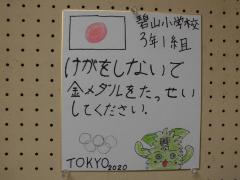 碧山小学校
3年1組
けがをしないで
金メダルをたっせい
してください.
TOKYO2020